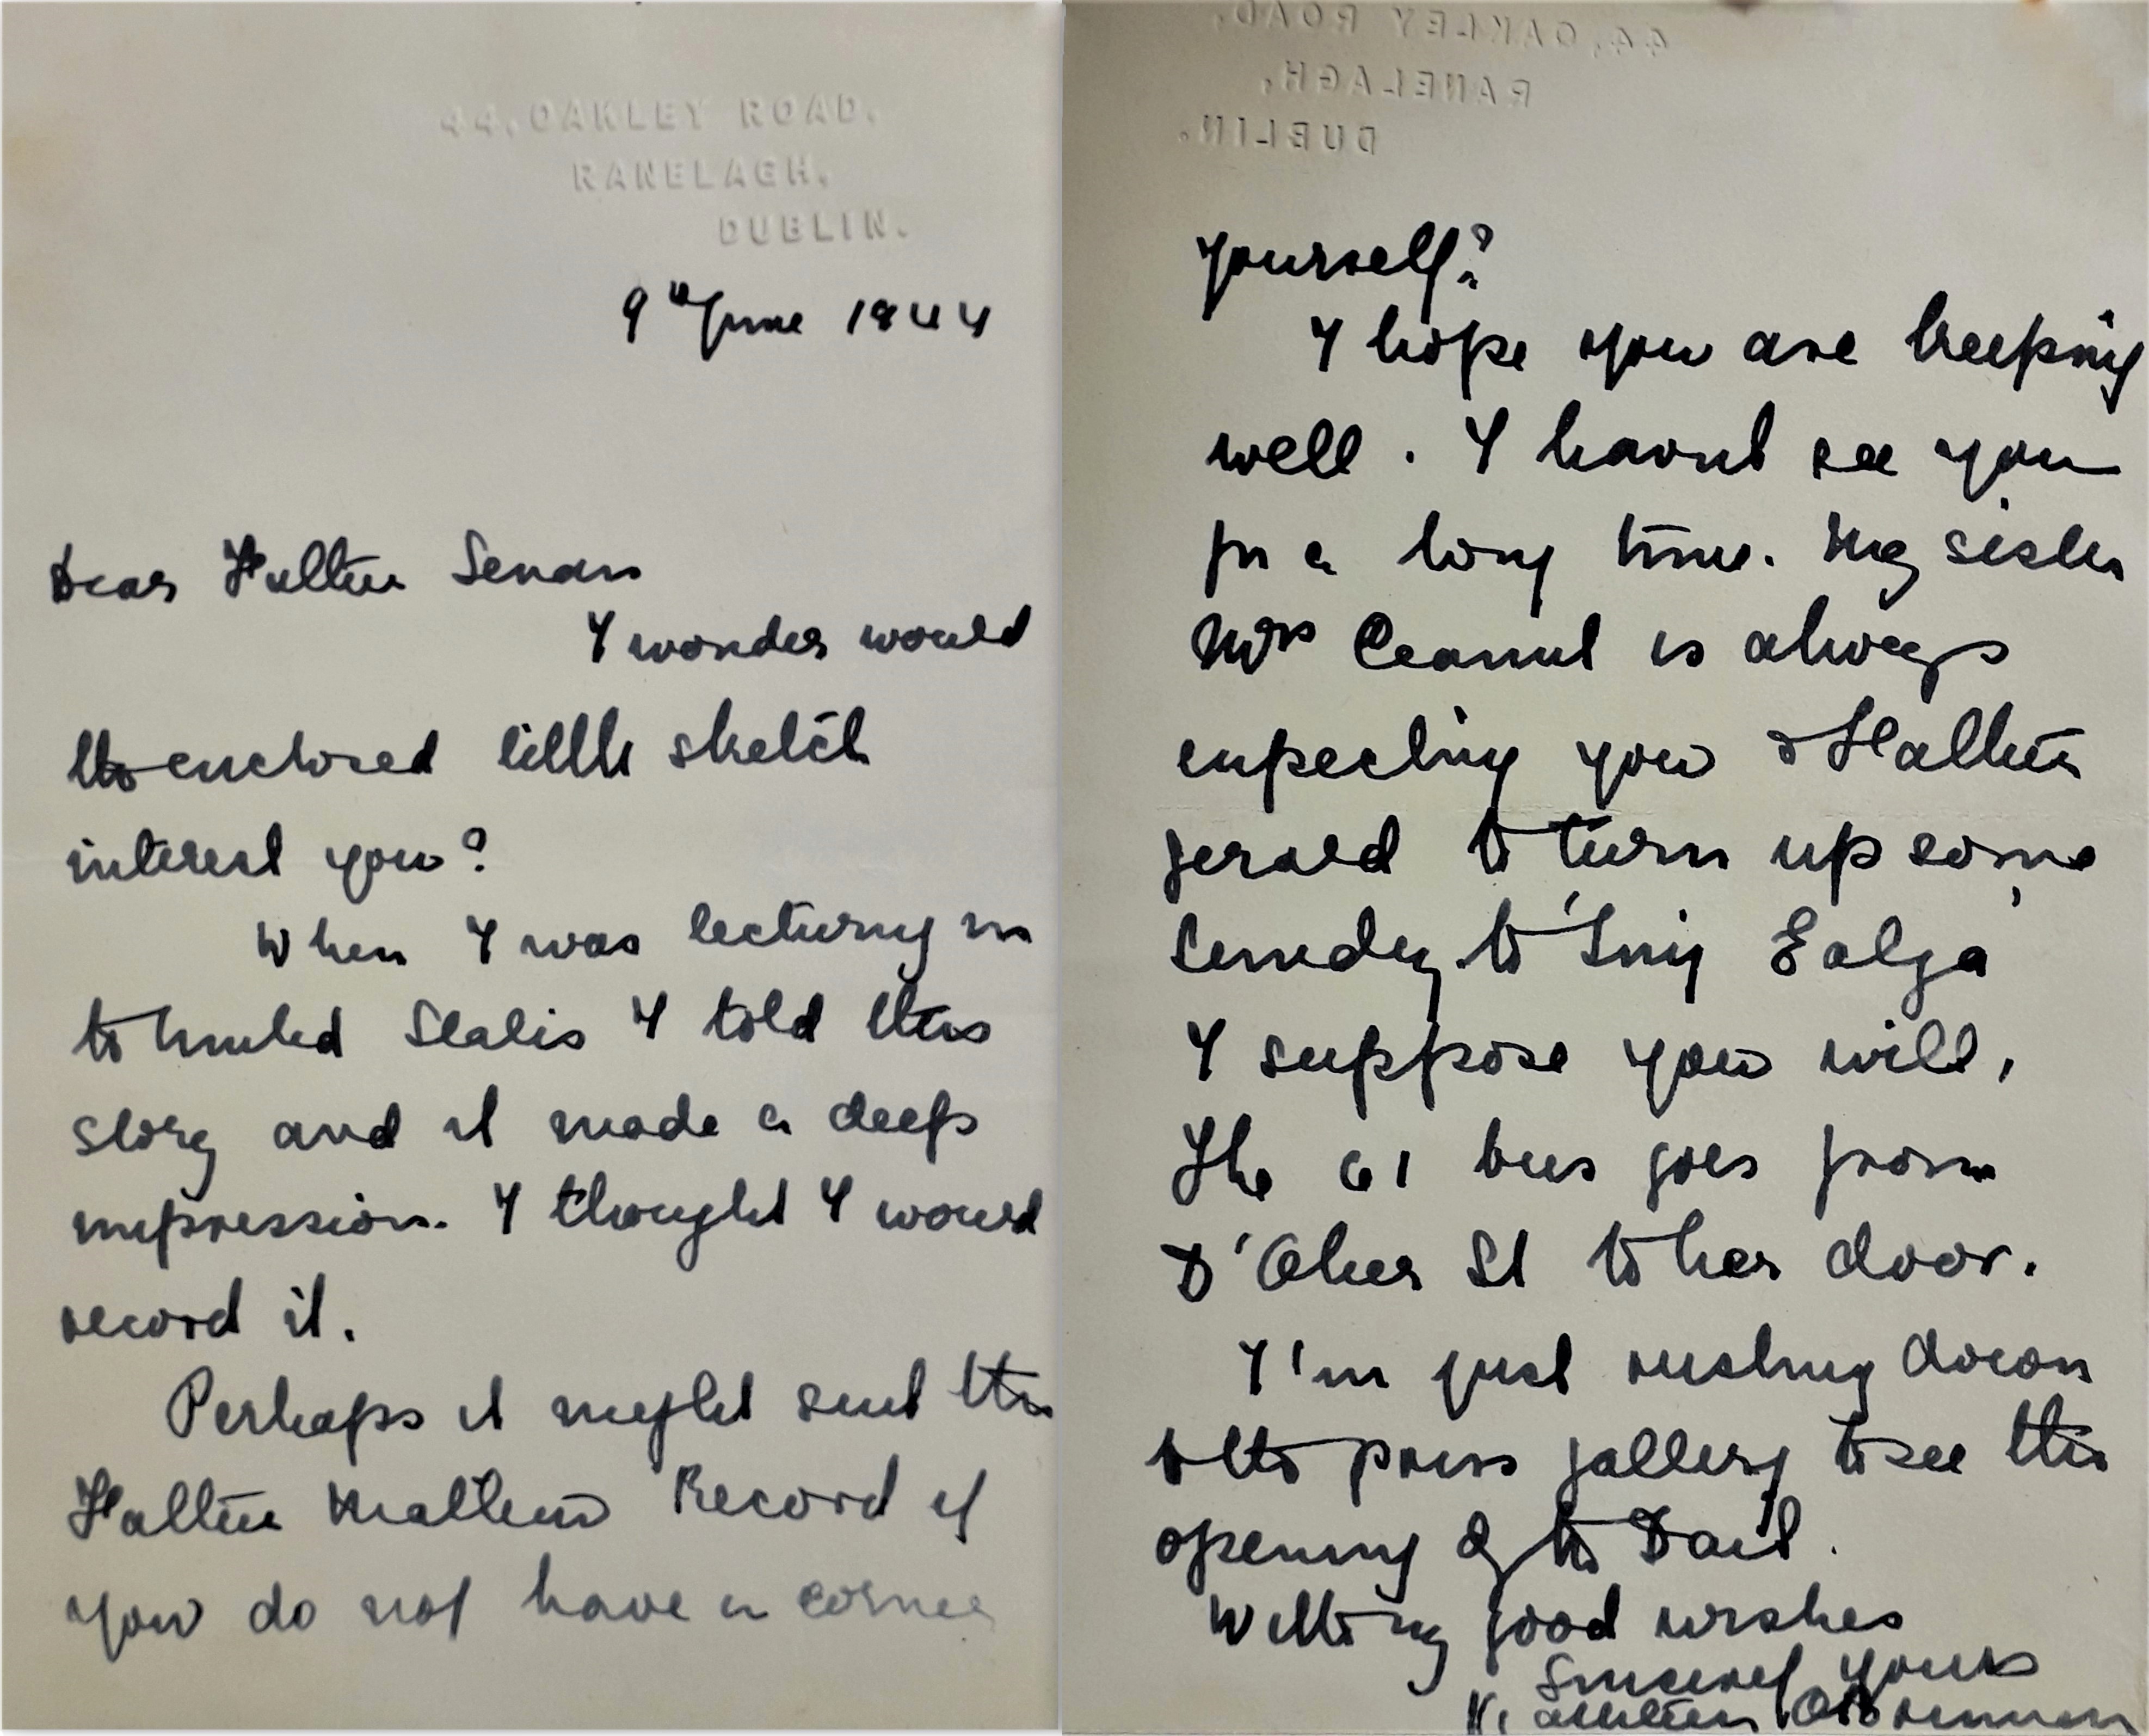 44, OAKLEY ROAD,
RANELAGH,
DUBLIN.
9th June 1944
Dear Father Senan
I wonder would
the enclosed little sketch
interest you?
When I was lecturing in
the United States I told this
story and it made a deep
impression. I thought I would
record it.
Perhaps it might suit the
Father Mathew Record if
you do not have a corner
44, OAKLEY ROAD,
RANELAGH,
DUBLIN.
yourself?
I hope you are keeping
well. I havnt see you
for a long time. My sister
Mrs Ceannt is always
expecting you & Father
Gerald to turn up some
Sunday to
I suppose you will.
The 61 bus goes from
D'Olier St to her door.
I'm just rushing down
to the press gallery to see the
opening of the Dail.
With my good wishes
Sincerely yours
Kathleen O'Brennan